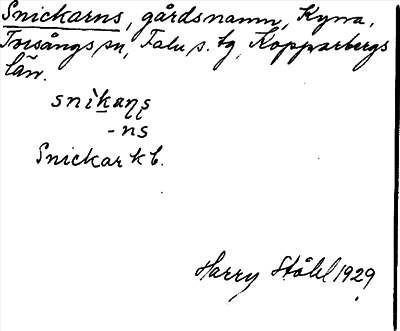 Snickarns, gårdsnamn, Kyna,
Torsångs sn, Falu s. tg, Kopparbergs
län.
snìkaṇṣ
- ns
Snickar kb.
Harry Ståhl 1929